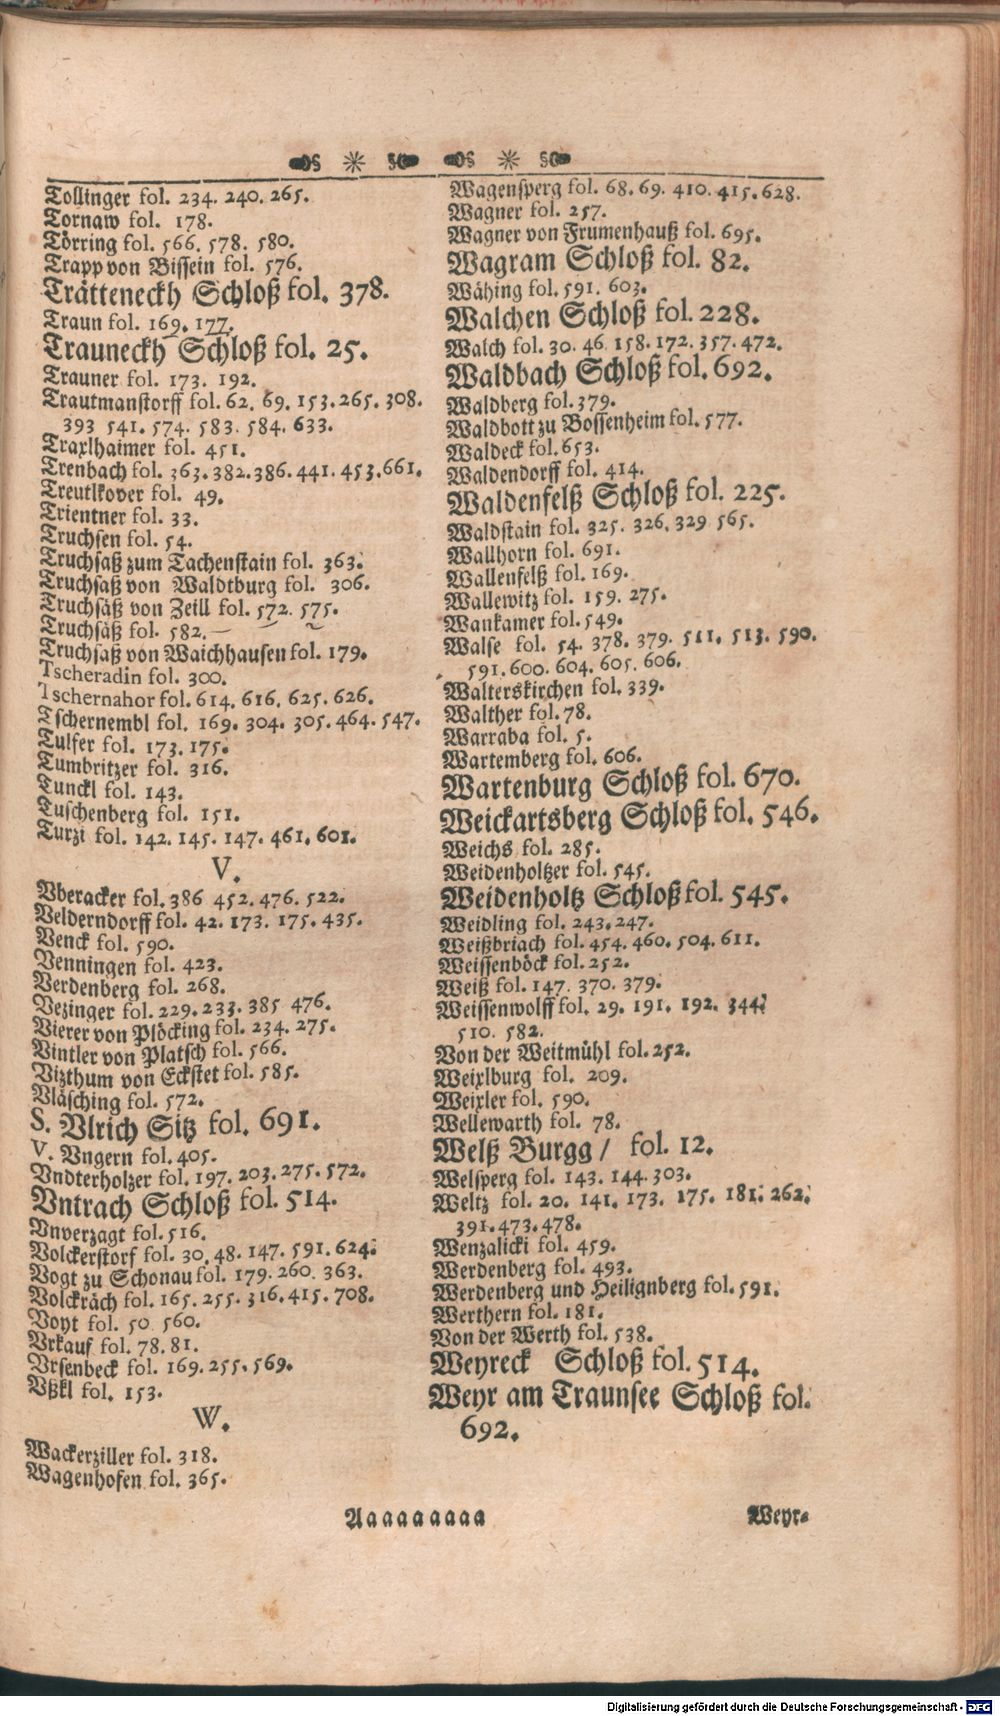 Tollinger fol. 234. 240. 265.
Tornaw fol. 178.
Törring fol. 566. 578. 580.
Trapp von Bissein fol. 576.
Trätteneckh Schloß fol. 378.
Traun fol. 169. 177.
Trauneckh Schloß fol. 25.
Trauner fol. 173. 192.
Trautmanstorff fol. 62. 69. 153. 265. 308.
393 541. 574. 583. 584. 633.
Traxlhaimer fol. 451.
Trenbach fol. 363. 382. 386. 441. 453. 661.
Treutlkover fol. 49.
Trientner fol. 33.
Truchsen fol. 54.
Truchsaß zum Tachenstain fol. 363.
Truchsaß von Waldtburg fol. 306.
Truchsäß von Zeill fol. 572. 575.
Truchsäß fol. 582.
Truchsaß von Waichhausen fol. 179.
Tscheradin fol. 300.
Tschernahor fol. 614. 616. 625. 626.
Tschernembl fol. 169. 304. 305. 464. 547.
Tulfer fol. 173. 175.
Tumbritzer fol. 316.
Tunckl fol. 143.
Tuschenberg fol. 151.
Turzi fol. 142. 145. 147. 461. 601.
V.
Vberacker fol. 386 452. 476. 522.
Velderndorff fol. 42. 173. 175. 435.
Venck fol. 590.
Venningen fol. 423.
Verdenberg fol. 268.
Vezinger fol. 229. 233. 385 476.
Vierer von Plöcking fol. 234. 275.
Vintler von Platsch fol. 566.
Vizthum von Eckstet fol. 585.
Vläsching fol. 572.
S. Vlrich Sitz fol. 691.
V. Vngern fol. 405.
Vndterholzer fol. 197. 203. 275. 572.
Vntrach Schloß fol. 514.
Vnverzagt fol. 516.
Volckerstorf fol. 30. 48. 147. 591. 624.
Vogt zu Schonau fol. 179. 260. 363.
Volckräch fol. 165. 255. 316. 415. 708.
Voyt fol. 50. 560.
Vrkauf fol. 78. 81.
Vrsenbeck fol. 169. 255. 569.
Vßkl fol. 153.
W.
Wackerziller fol. 318.
Wagenhofen fol. 365.
Wagensperg fol. 68. 69. 410. 415. 628.
Wagner fol. 257.
Wagner von Frumenhauß fol. 695.
Wagram Schloß fol. 82.
Wähing fol. 591. 603.
Walchen Schloß fol. 228.
Walch fol. 30. 46. 158. 172. 357. 472.
Waldbach Schloß fol. 692.
Waldberg fol. 379.
Waldbott zu Bossenheim fol. 577.
Waldeck fol. 653.
Waldendorff fol. 414.
Waldenfelß Schloß fol. 225.
Waldstain fol. 325. 326. 329 565.
Wallhorn fol. 691.
Wallenfelß fol. 169.
Wallewitz fol. 159. 275.
Wankamer fol. 549.
Walse fol. 54. 378. 379. 511. 513. 590.
591. 600. 604. 605. 606.
Walterskirchen fol. 339.
Walther fol. 78.
Warraba fol. 5.
Wartemberg fol. 606.
Wartenburg Schloß fol. 670.
Weickartsberg Schloß fol. 546.
Weichs fol. 285.
Weidenholtzer fol. 545.
Weidenholtz Schloß fol. 545.
Weidling fol. 243. 247.
Weißbriach fol. 454. 460. 504. 611.
Weissenböck fol. 252.
Weiß fol. 147. 370. 379.
Weissenwolff fol. 29. 191. 192. 344.
510. 582.
Von der Weitmühl fol. 252.
Weixlburg fol. 209.
Weixler fol. 590.
Wellewarth fol. 78.
Welß Burgg / fol. 12.
Welsperg fol. 143. 144. 303.
Weltz fol. 20. 141. 173. 175. 181. 262.
391. 473. 478.
Wenzalicki fol. 459.
Werdenberg fol. 493.
Werdenberg und Heilignberg fol. 591.
Werthern fol. 181.
Von der Werth fol. 538.
Weyreck Schloß fol. 514.
Weyr am Traunsee Schloß fol.
692.
Aaaaaaaaa
Weyr-
Digitalisierung gefördert durch die Deutsche Forschungsgemeinschaft - DFG